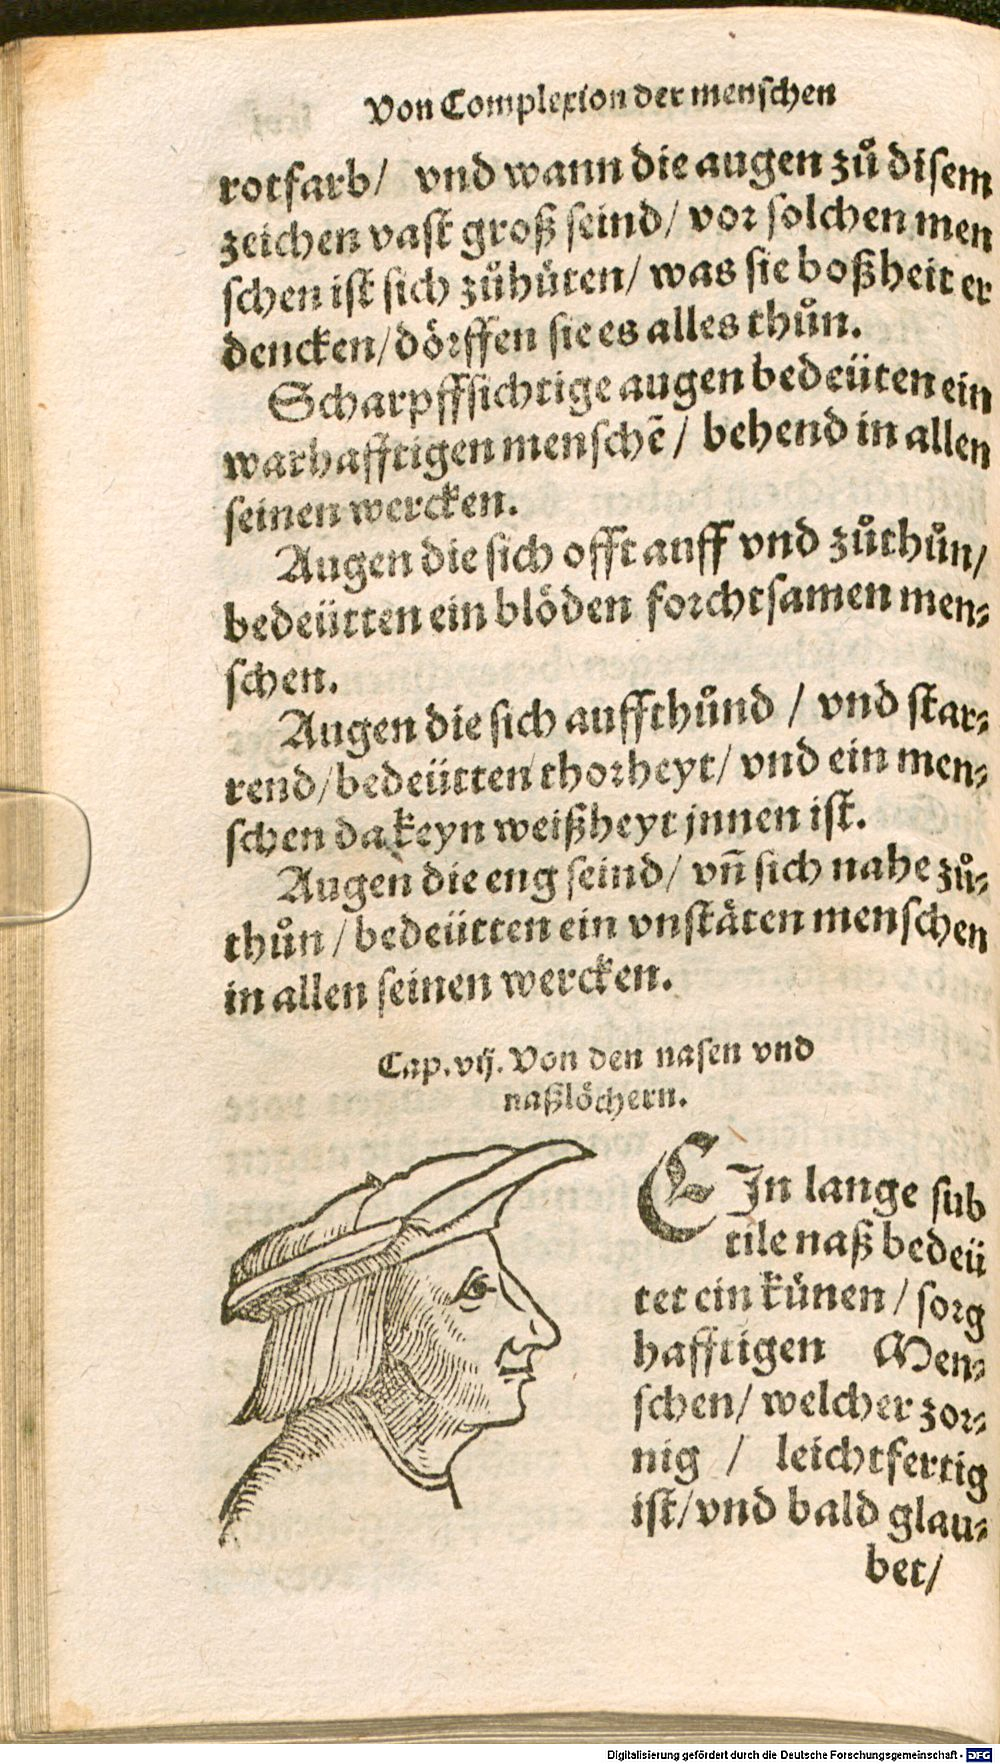 Von Complexion der menſchen
rotfarb/ vnd wann die augen zů diſem
zeichen vaſt groß ſeind/ vor ſolchen men
ſchen iſt ſich zůhůten/ was ſie boßheit er
dencken/dörffen ſie es alles thůn.
Scharpffſichtige augen bedeüten ein
warhafftigen menſchē/ behend in allen
ſeinen wercken.
Augen die ſich offt auff vnd zůthůn/
bedeütten ein blöden forchtſamen men⸗
ſchen.
Augen die ſich auffthůnd / vnd ſtar⸗
rend/bedeütten thorheyt/ vnd ein men⸗
ſchen da keyn weißheyt jnnen iſt.
Augen die eng ſeind/ vñ ſich nahe zů⸗
thůn/bedeütten ein vnſtäten menſchen
in allen ſeinen wercken.
Cap.vij. Von den naſen vnd
naßlöchern.
EIn lange ſub
tile naß bedeü
tet ein künen/ ſorg
hafftigen Men⸗
ſchen/ welcher zor⸗
nig / leichtfertig
iſt/vnd bald glau⸗
bet/
Digitalisierung gefördert durch die Deutsche Forschungsgemeinschaft - DFG